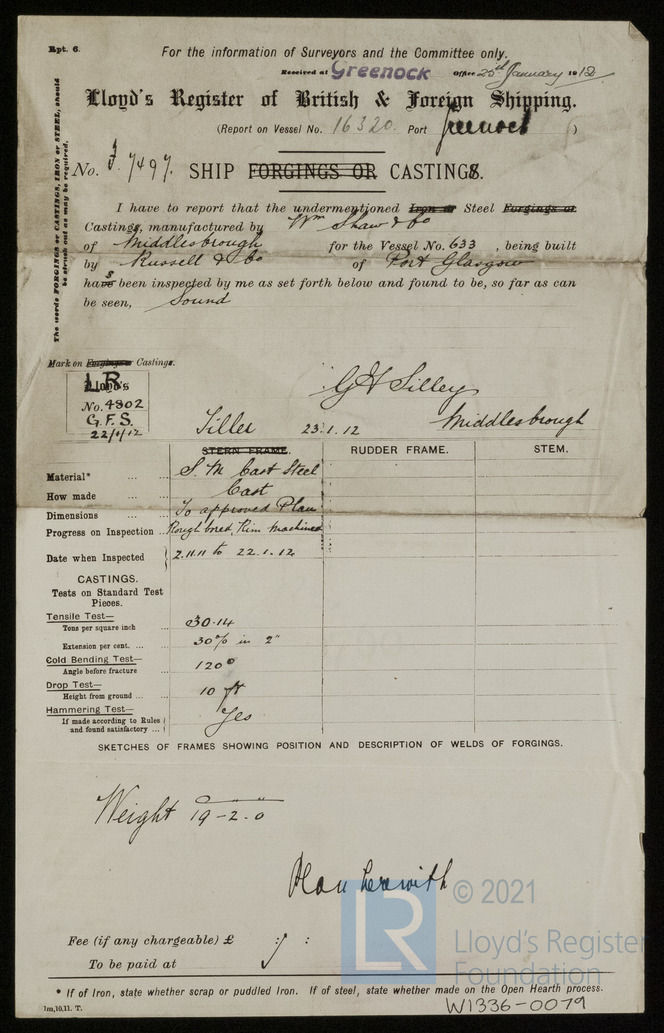 Rpt. 6.
For the information of Surveyors and the Committee only.
Received at Greenock Office 25th January 1912
Lloyd's Register of British & Foreign Shipping.
(Report on Vessel No. 16320. Port Greenock )
No. 7497. SHIP FORGINGS OR CASTINGS.
The words FORGINGS or CASTINGS, IRON or STEEL, should
be struck out as may be required.
I have to report that the undermentioned Iron or Steel Forgings or
Castings, manufactured by Wm Shaw & Co
of Middlesbrough for the Vessel No. 633 , being built
by Russell & Co of Port Glasgow
has been inspected by me as set forth below and found to be, so far as can
be seen, Sound
Mark on Forgings or Castings.
LR
Lloyd's
No. 4802
G.F.S.
22/1/12
G H Silley
Tiller 23.1.12 Middlesbrough
STERN FRAME. RUDDER FRAME. STEM.
Material* ... ... S. M Cast Steel
How made ... ... Cast
Dimensions ... ... To approved Plan
Progress on Inspection ... Rough bored, Rim machined
Date when Inspected 2.11.11 to 22.1.12
CASTINGS.
Tests on Standard Test
Pieces.
Tensile Test—
Tons per square inch 30.14
Extension per cent. ... ... 30% in 2"
Cold Bending Test—
Angle before fracture 120°
Drop Test—
Height from ground ... ... 10 ft
Hammering Test—
If made according to Rules
and found satisfactory ... Yes
SKETCHES OF FRAMES SHOWING POSITION AND DESCRIPTION OF WELDS OF FORGINGS.
Weight 19-2-0
Plan herewith
© 2021
LR
Lloyd's Register
Foundation
Fee (if any chargeable) £ : :
To be paid at
* If of Iron, state whether scrap or puddled Iron. If of steel, state whether made on the Open Hearth process.
1m,10,11. T.
W1336-0079